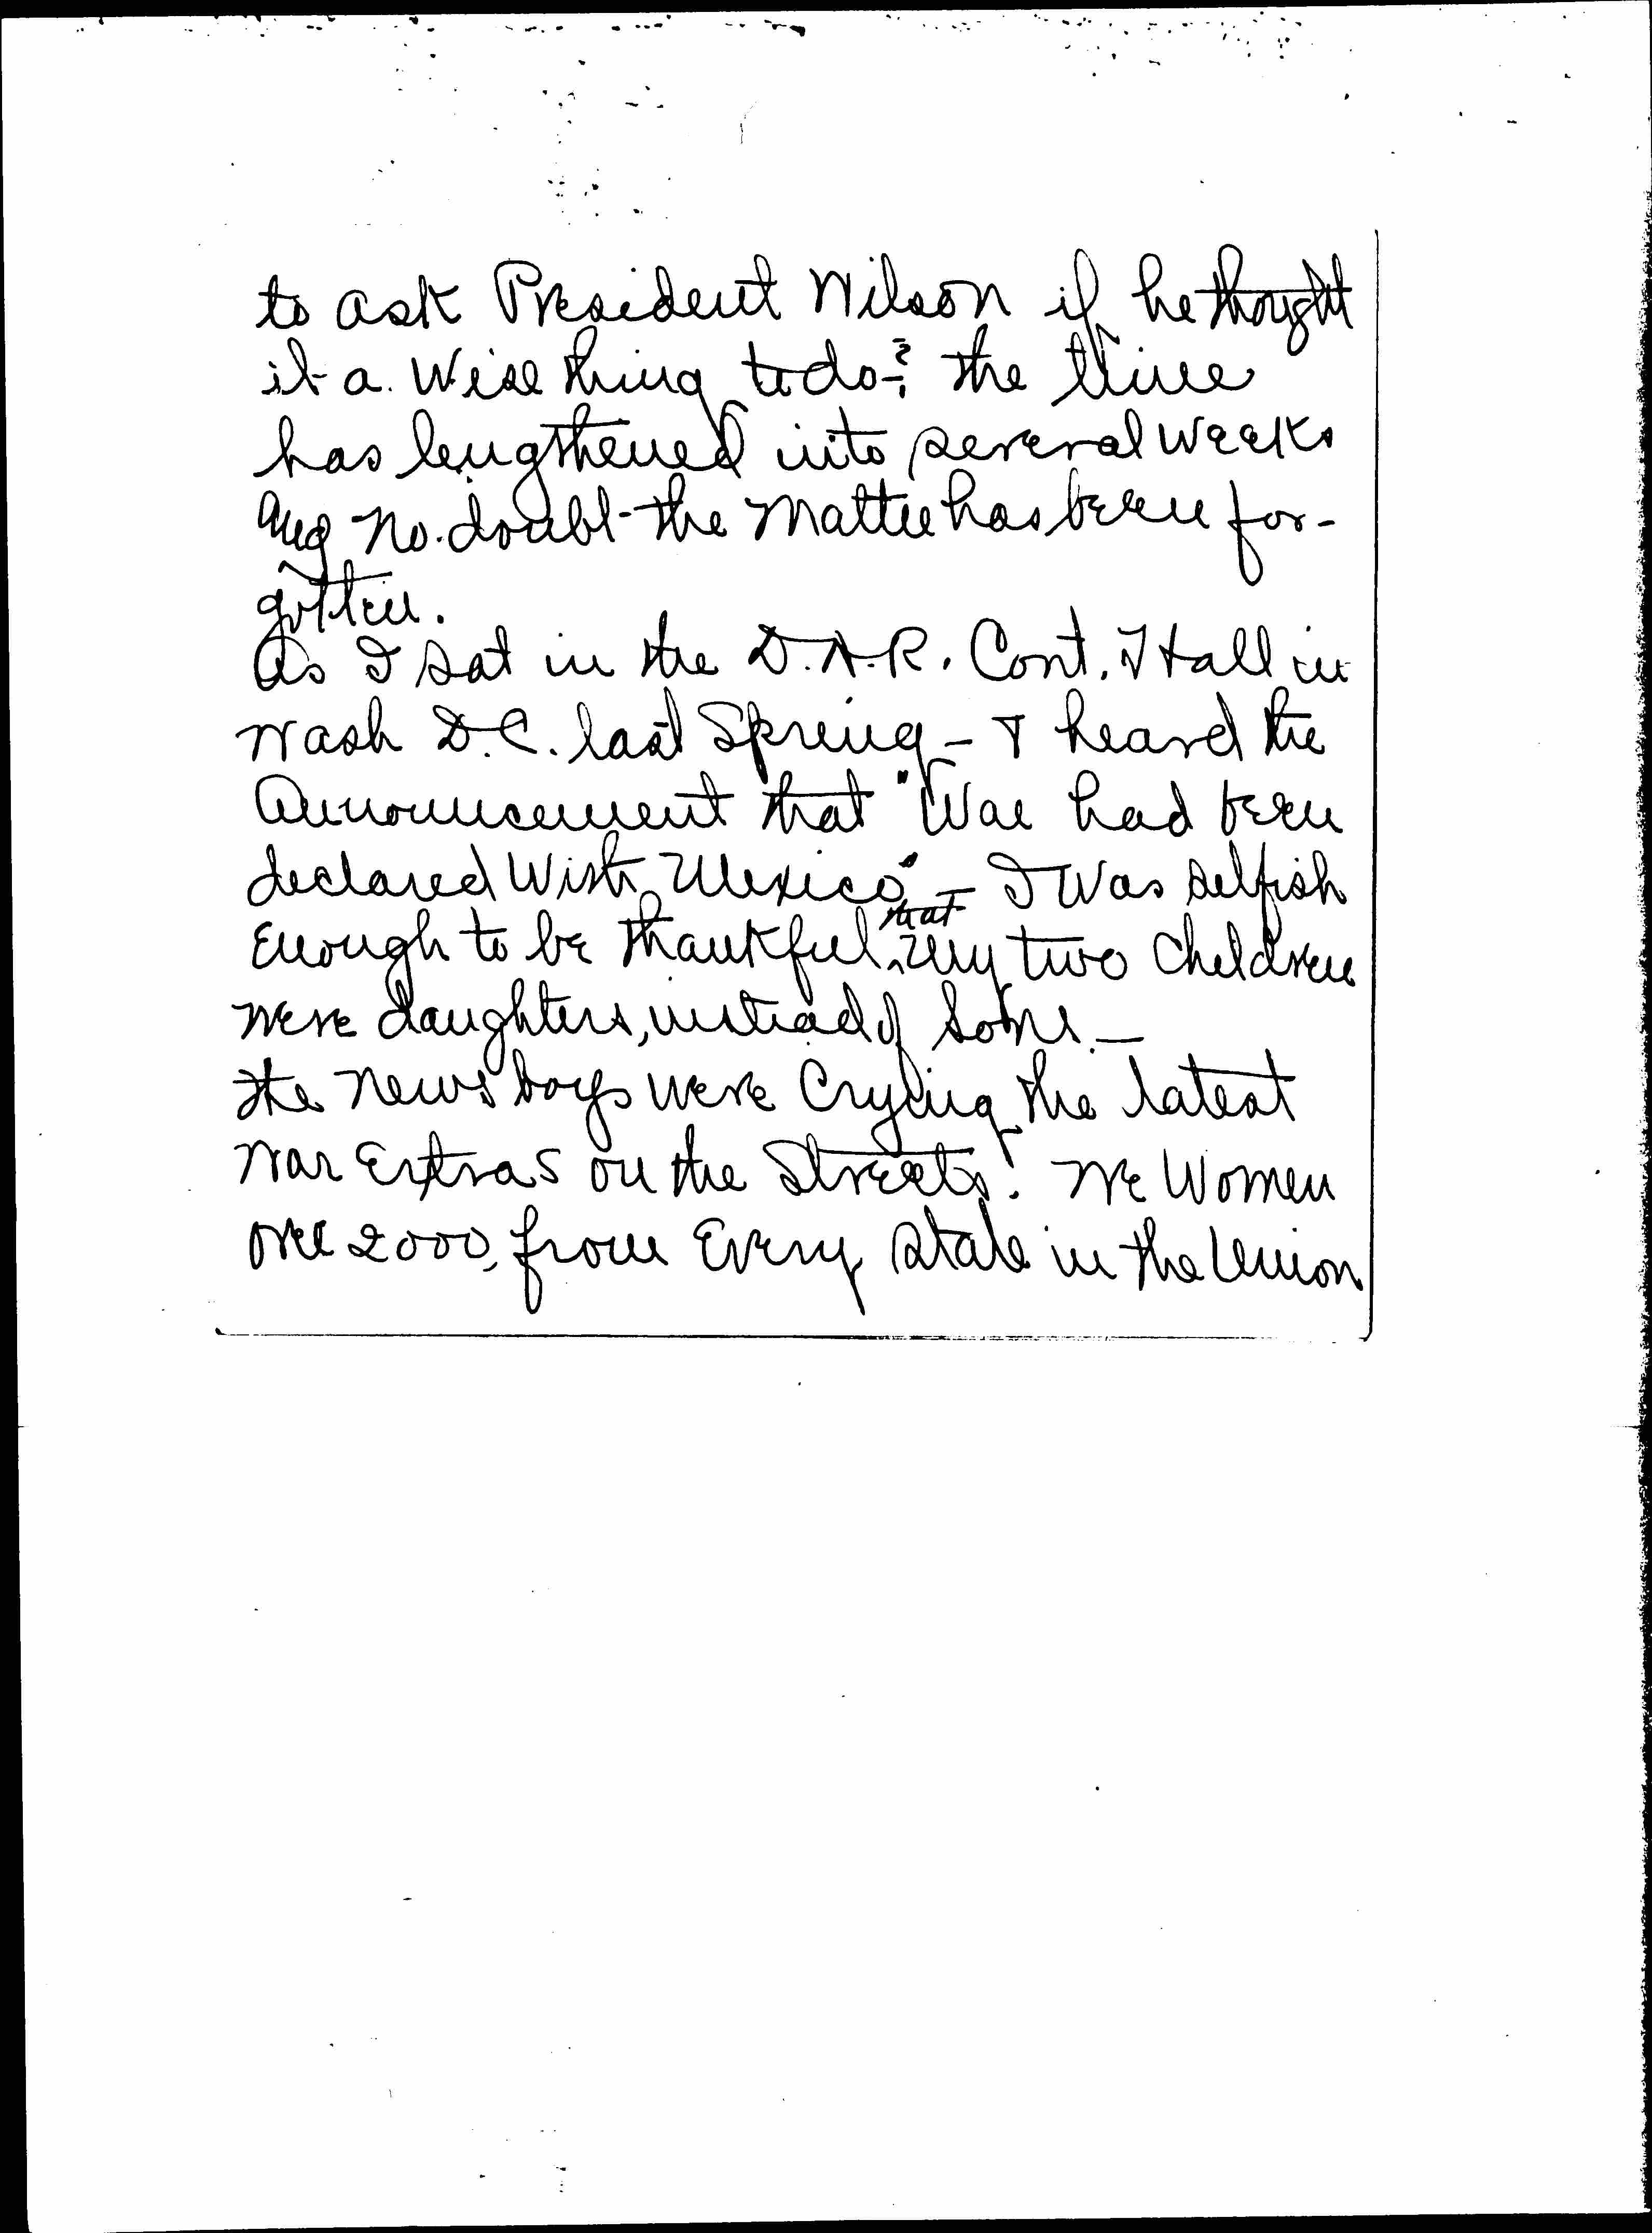 to ask President Wilson if he thought
it a wise thing to do-? The time
has lengthened into several weeks
and no doubt the matter has been for-
gotten.
As I sat in the D.A.R. Cont. Hall in
Wash D.C. last Spring - & heard the
announcement that "War had been
declared with Mexico" - I was selfish
enough to be thankful that my two children
were daughters, instead of sons. -
The newsboys were crying the latest
war extras on the streets! We women
over 2000, from every state in the Union